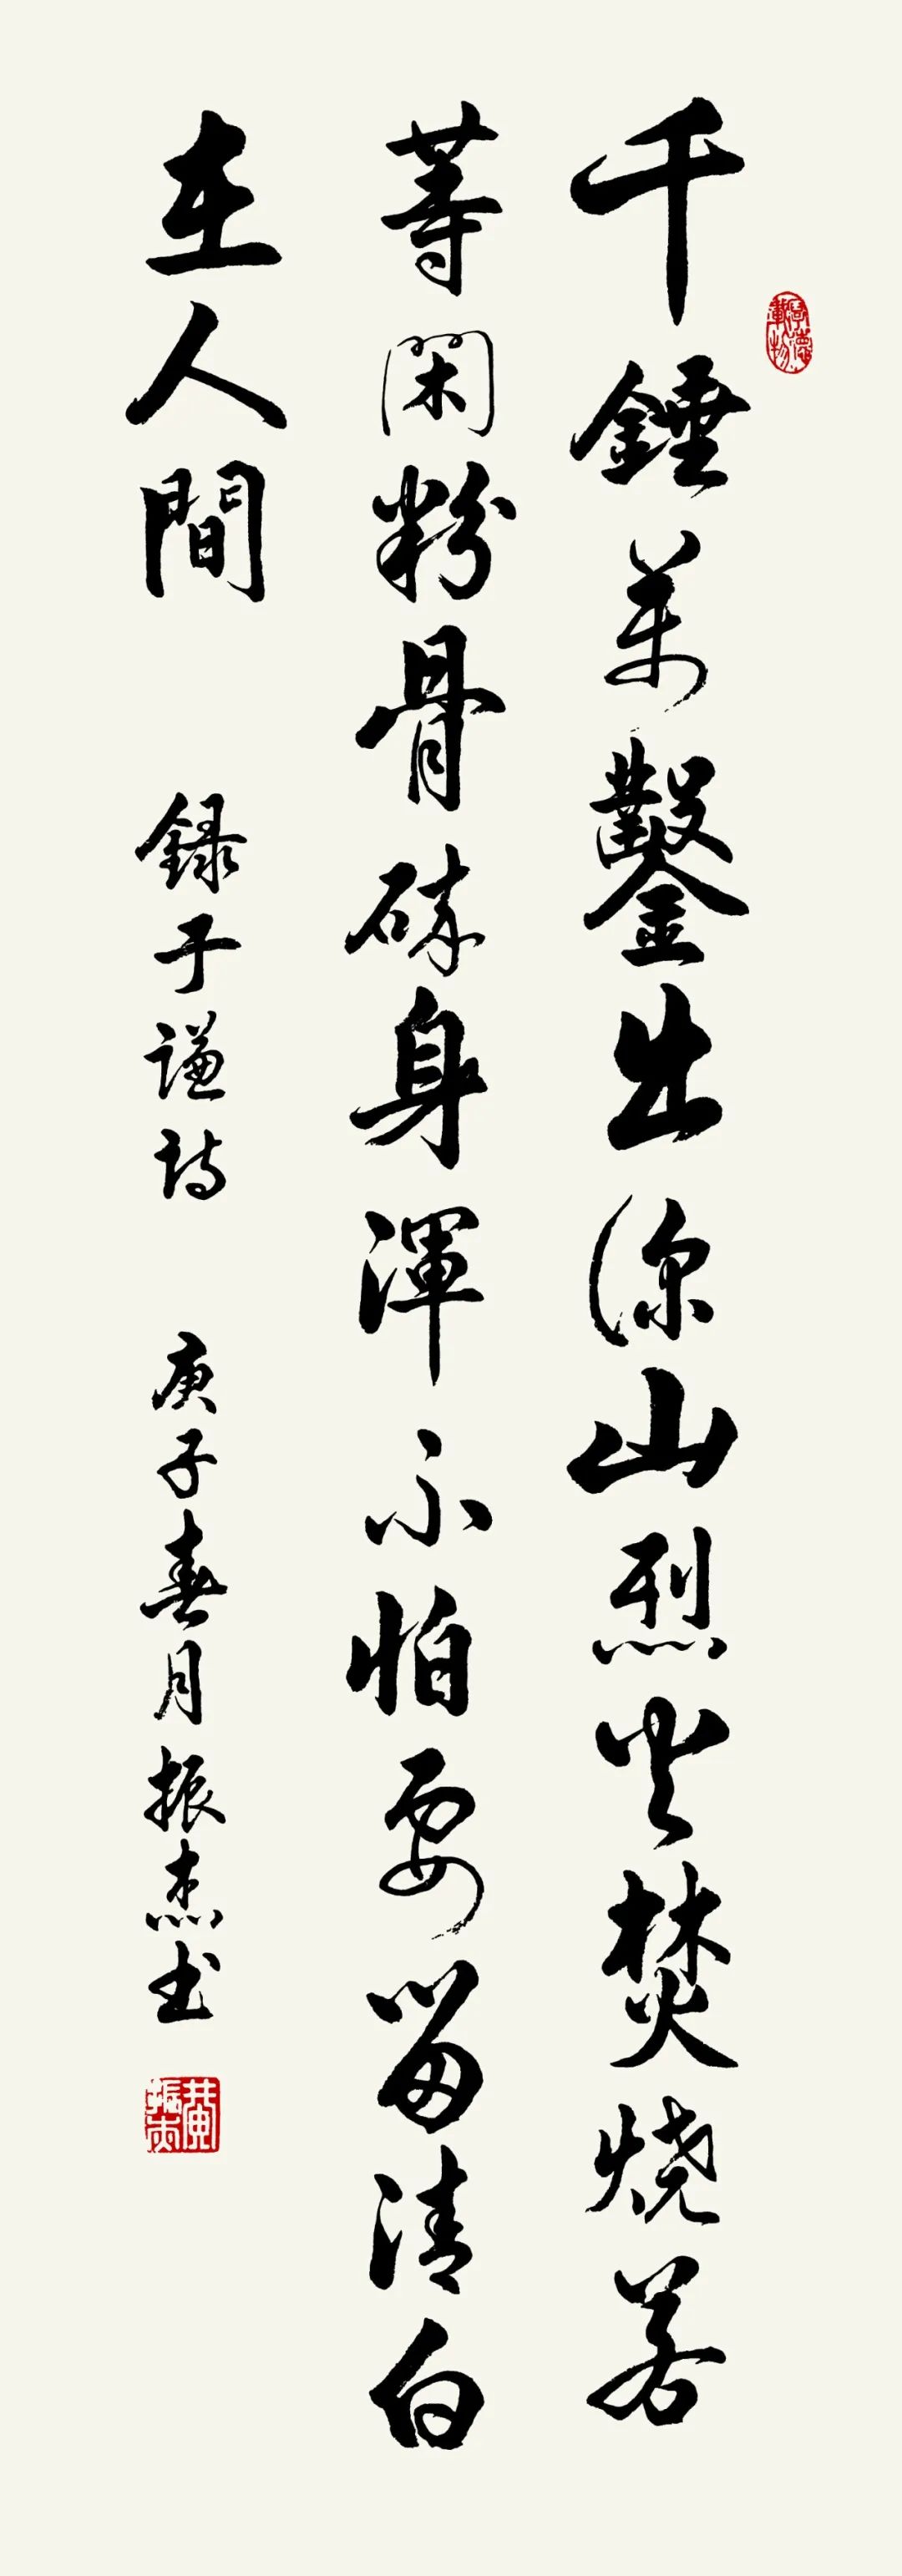 千錘萬鑿出深山烈火焚燒若
等閑粉骨碎身渾不怕要留清白
在人間
録于謙詩 庚子春月振杰书
厚德載物